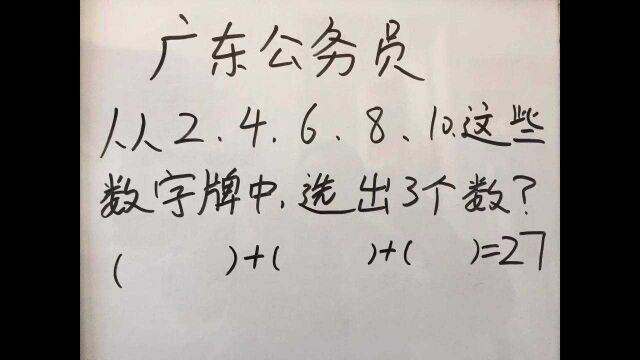 广东公务员
从2.4.6.8、10.这些
数字牌中,选出3个数?
( )+( )+( )=27